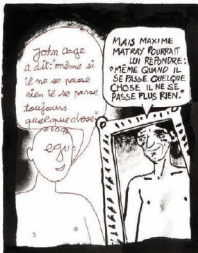 John Cage
a dit: "même si
il ne se passe
rien il se passe
toujours
quelque chose"
MAIS MAXIME
MATRAY POURRAIT
LUI RÉPONDRE:
"MÊME QUAND IL
SE PASSE QUELQUE
CHOSE IL NE SE
PASSE PLUS RIEN."
ego